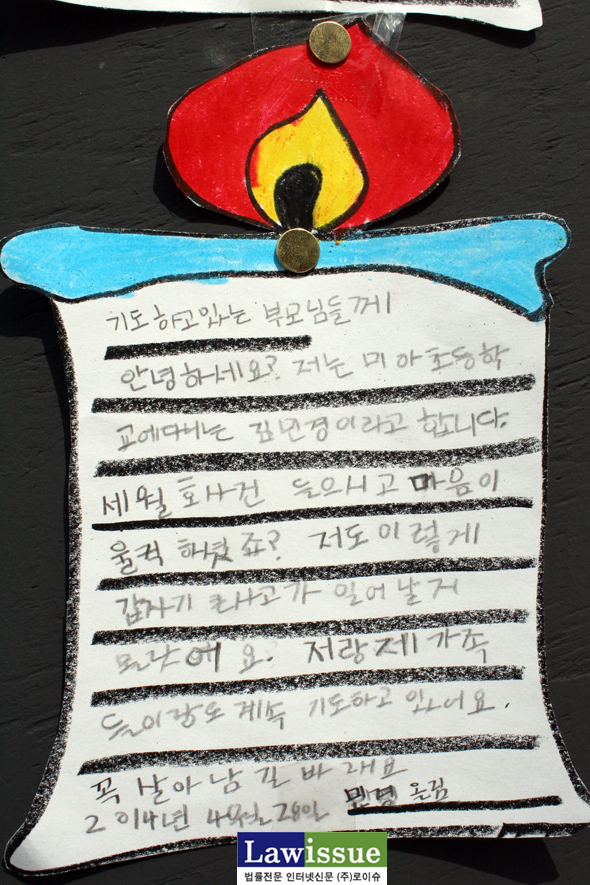 기도하고있는 부모님들께
안녕하세요? 저는 미아초등학
교에다니는 김민경이라고 합니다.
세월호사건 들으시고 마음이
울컥 하셨죠? 저도 이렇게
갑자기 큰사고가 일어날지
몰랐에요. 저랑제가족
들이랑도 계속 기도하고 있어요.
꼭 살아남길 바래요
2014년 4월 28일 민경 올림
Lawissue
법률전문 인터넷신문 (주)로이슈